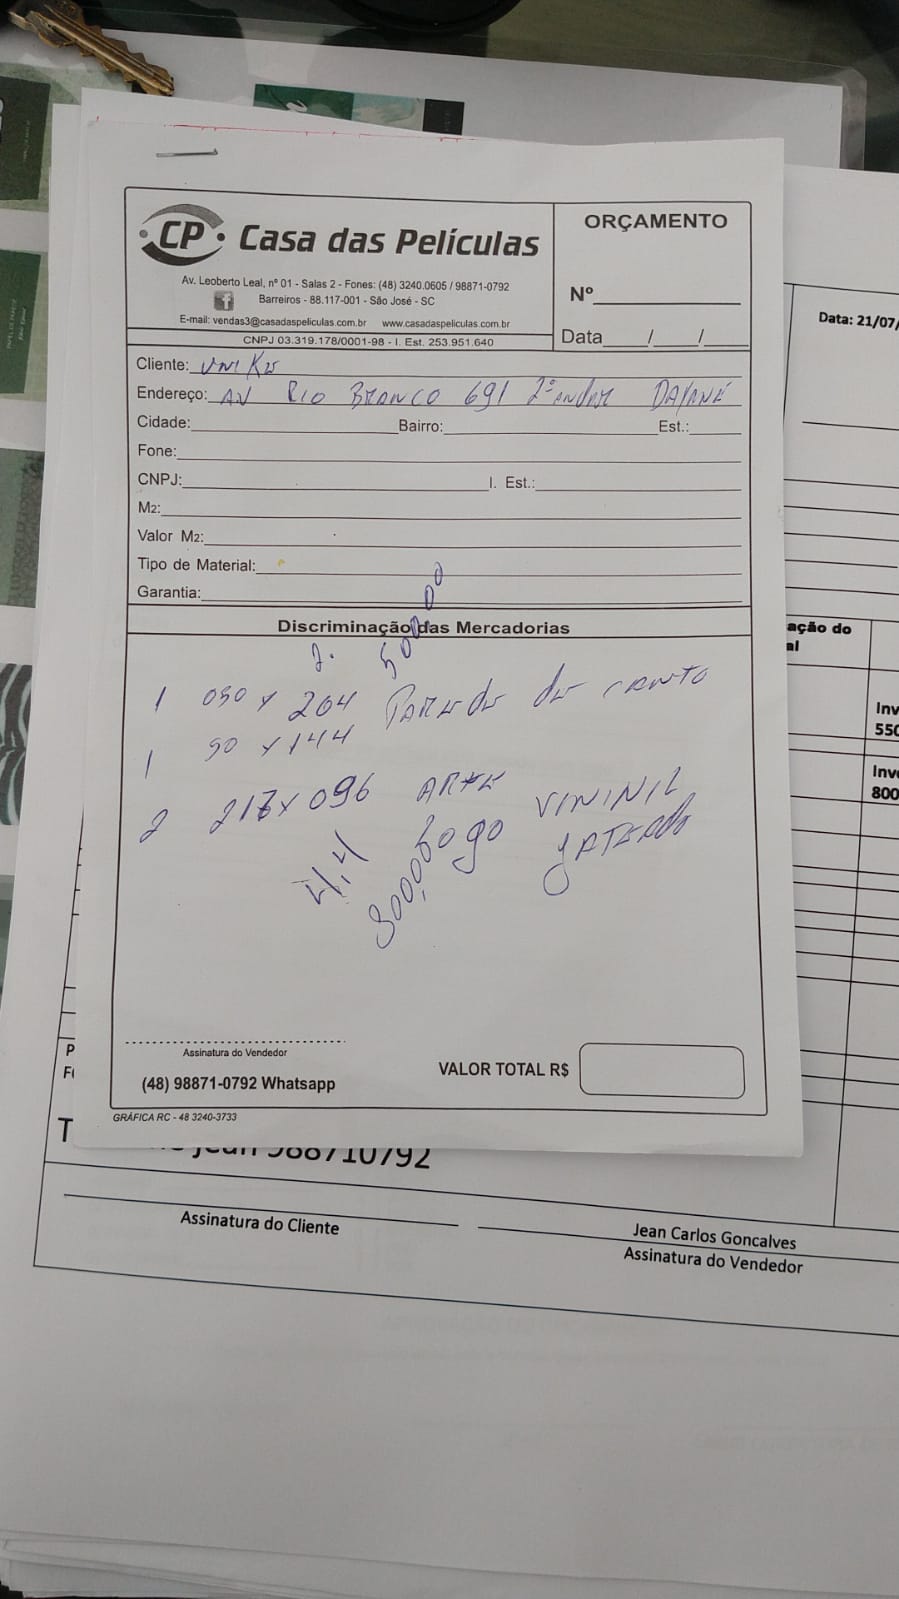 CP Casa das Películas
Av. Leoberto Leal, nº 01 - Salas 2 - Fones: (48) 3240.0605 / 98871-0792
Barreiros - 88.117-001 - São José - SC
E-mail: vendas3@casadaspeliculas.com.br www.casadaspeliculas.com.br
CNPJ 03.319.178/0001-98 - I. Est. 253.951.640
ORÇAMENTO
Nº
Data / /
Cliente:
Endereço: AV RIO BRANCO 691 2º ANDAR DAYANE
Cidade: Bairro: Est.:
Fone:
CNPJ: I. Est.:
M2:
Valor M2:
Tipo de Material:
Garantia:
Discriminação das Mercadorias
2. 500,00
1 090 x 204 PAREDE DE CANTO
1 90 x 144
2 217 x 096 ARTE VININIL
4,4 800,00 JATEADO
Assinatura do Vendedor
(48) 98871-0792 Whatsapp
VALOR TOTAL R$
GRÁFICA RC - 48 3240-3733
Data: 21/07/
ação do
al
Inv
550
Inve
800
P
T
Jean 988710792
Assinatura do Cliente
Jean Carlos Goncalves
Assinatura do Vendedor